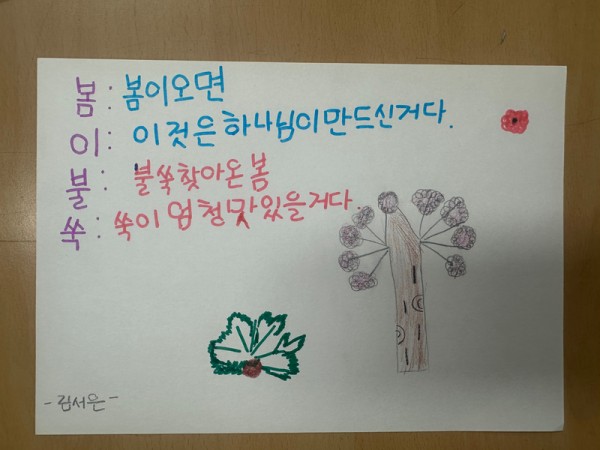 봄: 봄이오면
이: 이것은 하나님이만드신거다.
불: 불쑥찾아온봄
쑥: 쑥이 엄청맛있을거다.
-김서은-